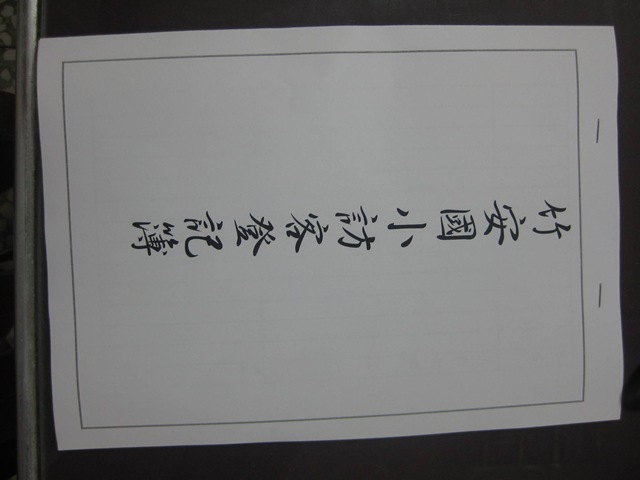 竹安國小訪客登記簿